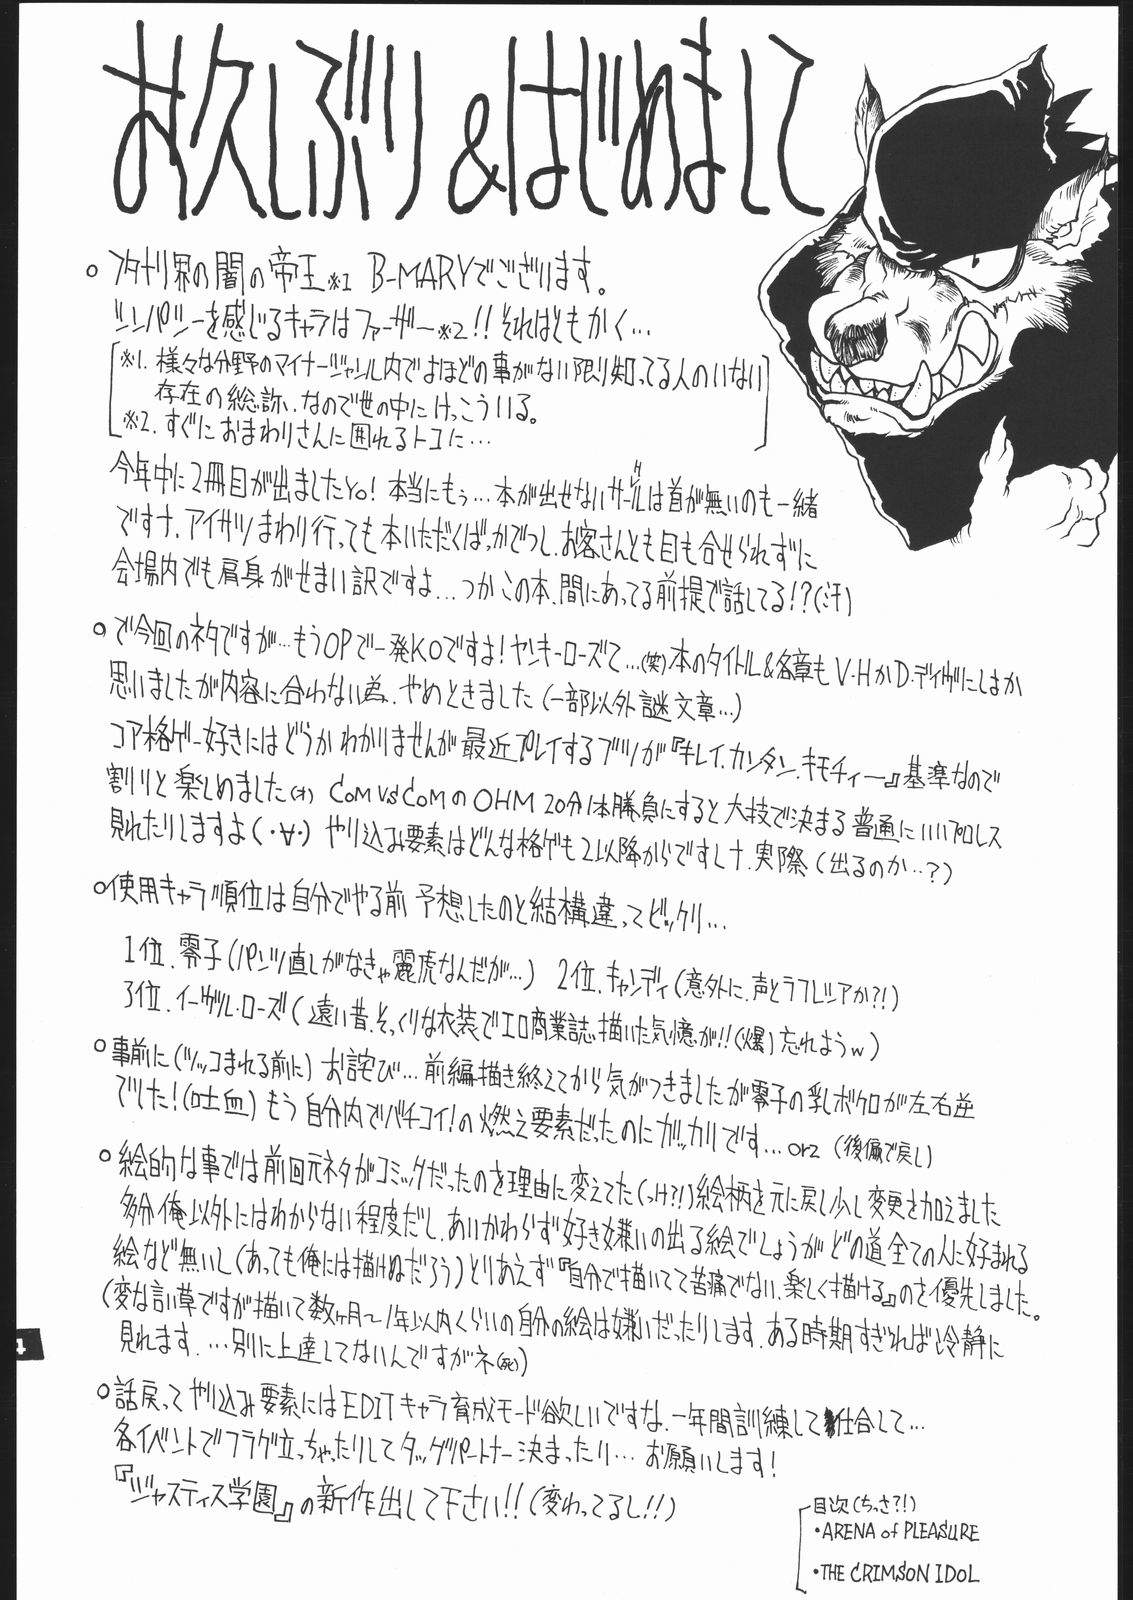 お久しぶり&はじめまして
○フタナリ界の闇の帝王※1 B-MARYでございます。
シンパシーを感じるキャラはファーザー※2!!それはともかく…
※1.様々な分野のマイナージャンル内でよほどの事がない限り知ってる人のいない
存在の総称、なので世の中にけっこういる。
※2.すぐにおまわりさんに囲れるトコに…
今年中に2冊目が出ましたYo!本当にもう…本が出せないサークルは首が無いのも一緒
ですナ.アイサツまわり行っても本いただくばっかでつし、お客さんとも目も合せられずに
会場内でも肩身がせまい訳ですよ…つかこの本、間にあってる前提で話してる!?(汗)
○で今回のネタですが…もうOPで一発KOですよ!ヤンキーローズて…(笑)本のタイトル&各章もV・HかD・デイヴにしまか
思いましたが内容に合わない為、やめときました(一部以外謎文章…)
コア格ゲー好きにはどうかわかりませんが最近プレイするブツが『キレイ.カンタン.キモチィー』基準なので
割りと楽しめました(オ) COM VS COMのOHM 20分1本勝負にすると大技で決まる普通にいいプロレス
見れたりしますよ(・∀・) やり込み要素はどんな格ゲも2以降からですしナ.実際(出るのか‥?)
○使用キャラ順位は自分でやる前予想したのと結構違ってビックリ…
1位.零子(パンツ直しがなきゃ麗虎なんだが…) 2位.キャンディ(意外に、声とラフレシアか?!)
3位.イーヴル・ローズ(遠い昔、そっくりな衣装でエロ商業誌描いた気憶が!!(爆)忘れようw)
○事前に(ツッコまれる前に)お詫び…前編描き終えてから気がつきましたが零子の乳ボクロが左右逆
でした!(吐血)もう自分内でバチコイ!の燃え要素だったのにガッカリです…orz (後偏で戻し)
○絵的な事では前回元ネタがコミックだったのを理由に変えてた(っけ?!)絵柄を元に戻し少し変更を加えました
多分俺以外にはわからない程度だし、あいかわらず好き嫌いの出る絵でしょうがどの道全ての人に好まれる
絵など無いし(あっても俺には描けぬだろう)とりあえず『自分で描いてて苦痛でない、楽しく描ける』のを優先しました。
(変な言い草ですが描いて数ヶ月〜1年以内くらいの自分の絵は嫌いだったりします、ある時期すぎれば冷静に
見れます.…別に上達してないんですがネ(死))
○話戻ってやり込み要素にはEDITキャラ育成モード欲しいですな.一年間訓練して仕合して…
各イベントでフラグ立っちゃったりしてタッグパートナー決まったり…お願いします!
『ジャスティス学園』の新作出して下さい!!(変わってるし!!)
目次(ちっさ?!)
・ARENA of PLEASURE
・THE CRIMSON IDOL
4